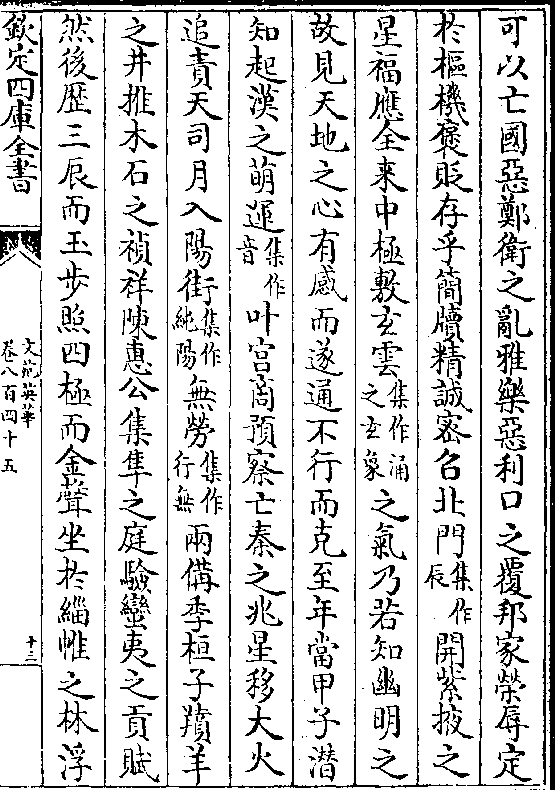 可以亡國惡鄭衛之亂雅樂惡利口之覆邦家榮辱定
於樞機襃貶存乎簡牘精誠宻召北門集作辰開紫掖之
星福應全來中極敷玄雲集作涌之玄象之氣乃若知幽明之
故見天地之心有感而遂通不行而克至年當甲子潜
知起漢之萌運集作音叶宫商預察亡秦之兆星移大火
追責天司月入陽街集作純陽無勞集作行無兩備季桓子羵羊
之井推木石之禎祥陳惠公集隼之庭驗蠻夷之貢賦
然後歴三辰而玉步照四極而金聲坐於緇帷之林浮
欽定四庫全書
文苑英華
卷八百四十五
十三